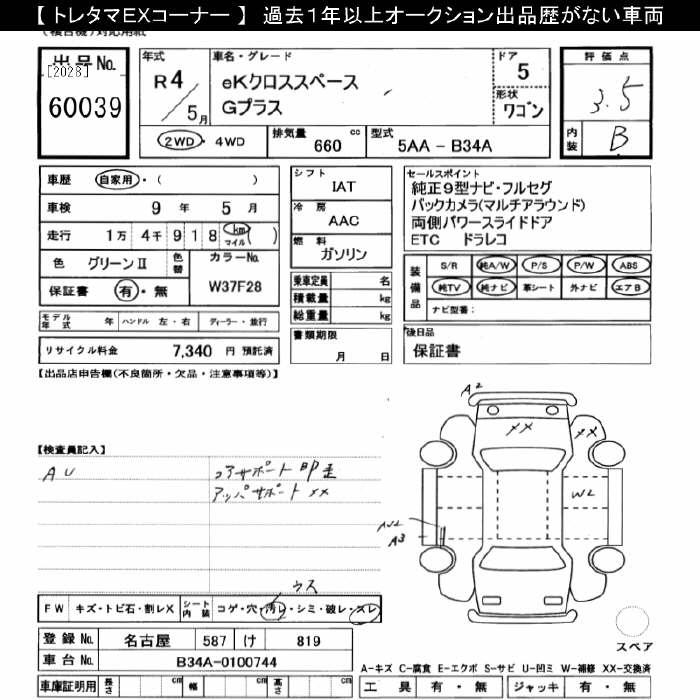 【 トレタマEXコーナー 】 過去1年以上オークション出品歴がない車両
(複合機)対応用紙
出品No.
[2028]
60039
年式
R4/5月
車名・グレード
eKクロススペース
Gプラス
ドア
5
形状
ワゴン
評価点
3.5
内装
B
2WD・4WD
排気量
660 cc
型式
5AA - B34A
車歴 自家用・( )
車検 9年 5月
走行 1万 4千 9 1 8 km マイル ( )
色 グリーンⅡ
色替
カラーNo.
W37F28
保証書 有・無
シフト
IAT
冷房
AAC
燃料
ガソリン
乗車定員 名
積載量 kg
総重量 kg
セールスポイント
純正9型ナビ・フルセグ
バックカメラ(マルチアラウンド)
両側パワースライドドア
ETC ドラレコ
装備品
S/R 純A/W P/S P/W ABS
純TV 純ナビ 革シート 外ナビ エアB
ナビ型番:
モデル年式 年 ハンドル 左・右 ディーラー・並行
リサイクル料金 7,340 円 預託済
書類期限
月 日
後日品
保証書
【出品店申告欄(不良箇所・欠品・注意事項等)】
【検査員記入】
AU
コアサポート 凹歪
アッパサポート XX
A2
XX
XX
W2
AU2
A3
ウス
FW キズ・トビ石・割レX
シート内装 コゲ・穴・汚レ・シミ・破レ・スレ
登録No. 名古屋 587 け 819
車台No. B34A-0100744
車庫証明用 長さ cm 幅 cm 高さ cm
スペア
A-キズ C-腐食 E-エクボ S-サビ U-凹ミ W-補修 XX-交換済
工具 有・無 ジャッキ 有・無